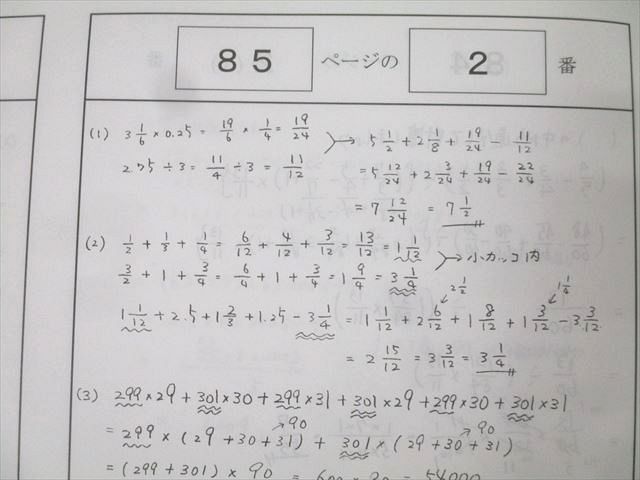 85 ページの 2 番
(1) 3 1/6 × 0.25 = 19/6 × 1/4 = 19/24 → 5 1/2 + 2 1/8 + 19/24 − 11/12
2.75 ÷ 3 = 11/4 ÷ 3 = 11/12 = 5 12/24 + 2 3/24 + 19/24 − 22/24
= 7 12/24 = 7 1/2
(2) 1/2 + 1/3 + 1/4 = 6/12 + 4/12 + 3/12 = 13/12 = 1 1/12 → 小カッコ内
3/2 + 1 + 3/4 = 6/4 + 1 + 3/4 = 1 9/4 = 3 1/4
2 1/2 1 1/4
1 1/12 + 2.5 + 1 2/3 + 1.25 − 3 1/4 = 1 1/12 + 2 6/12 + 1 8/12 + 1 3/12 − 3 3/12
= 2 15/12 = 3 3/12 = 3 1/4
(3) 299 × 29 + 301 × 30 + 299 × 31 + 301 × 29 + 299 × 30 + 301 × 31
→90 →90
= 299 × (29 + 30 + 31) + 301 × (29 + 30 + 31)
= (299 + 301) × 90 = 600 × 90 = 54000